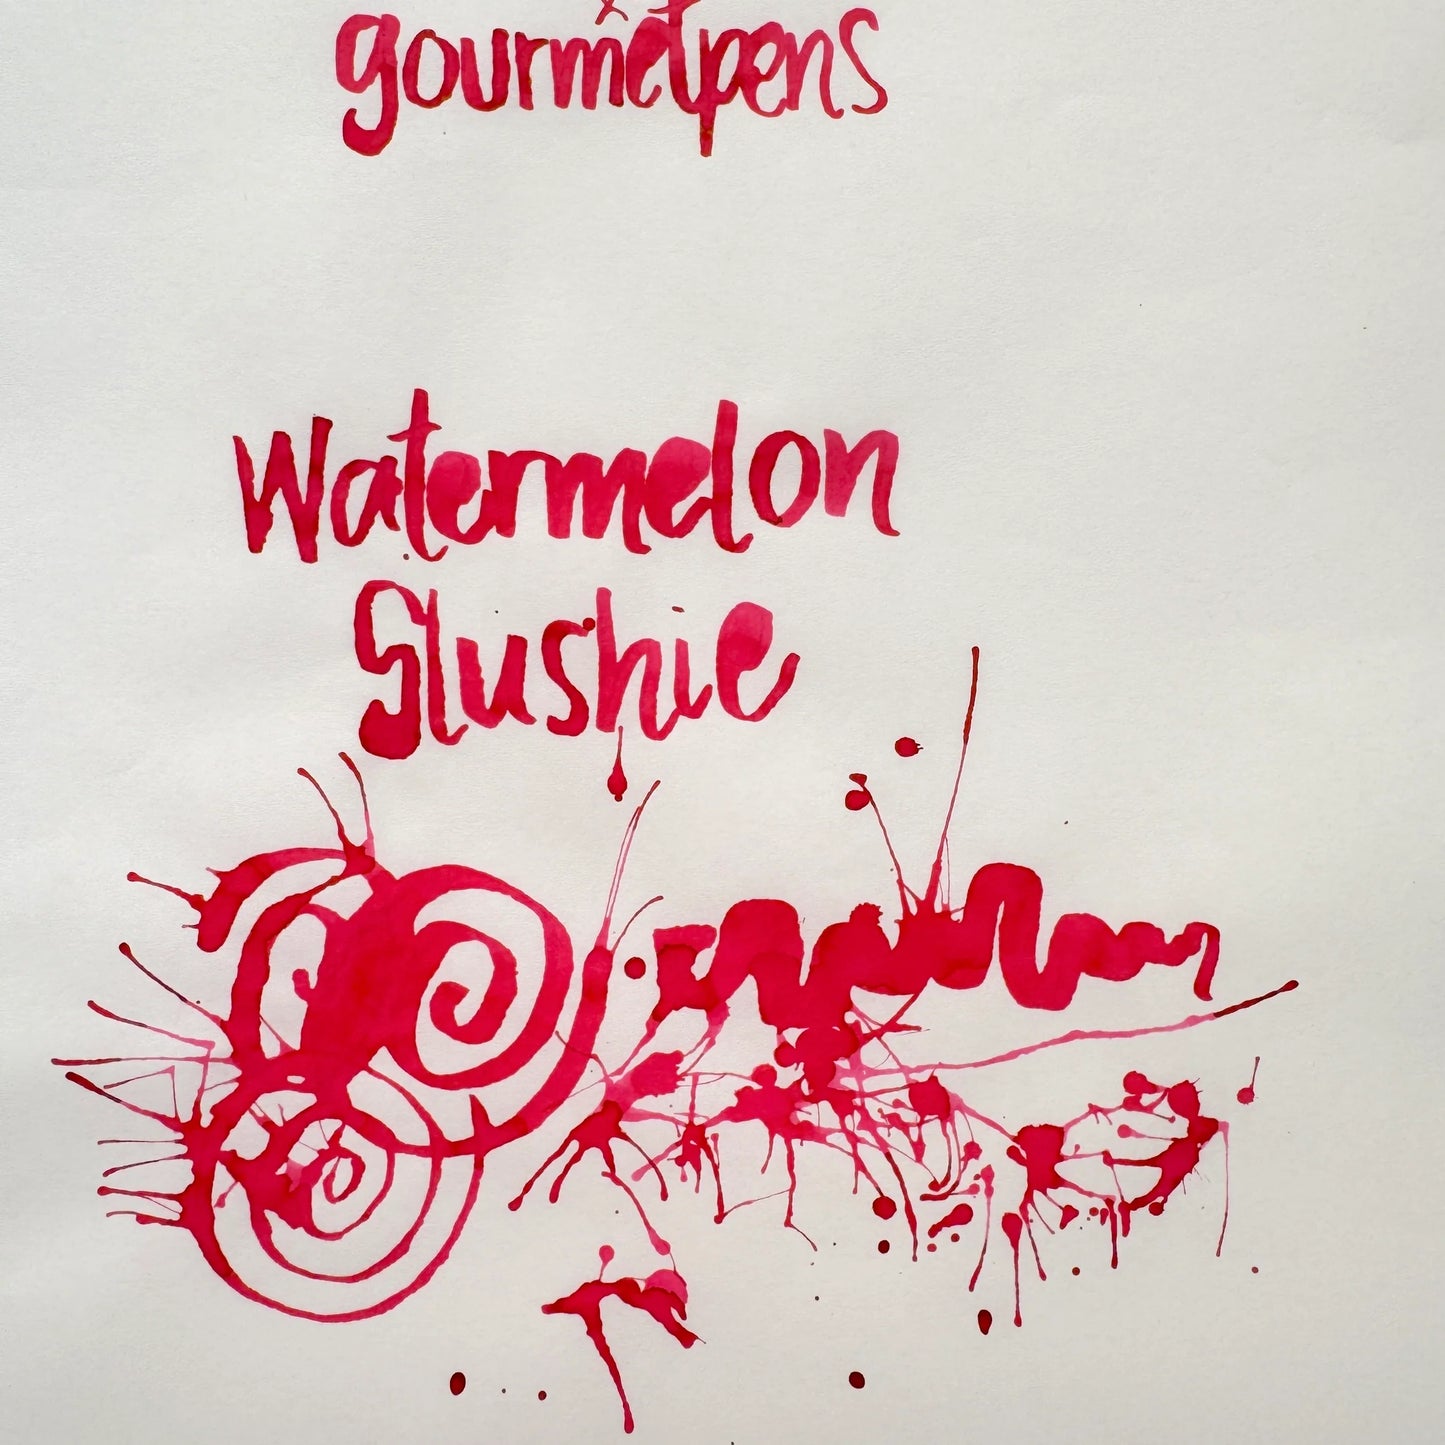 x
gourmetpens
Watermelon
Slushie